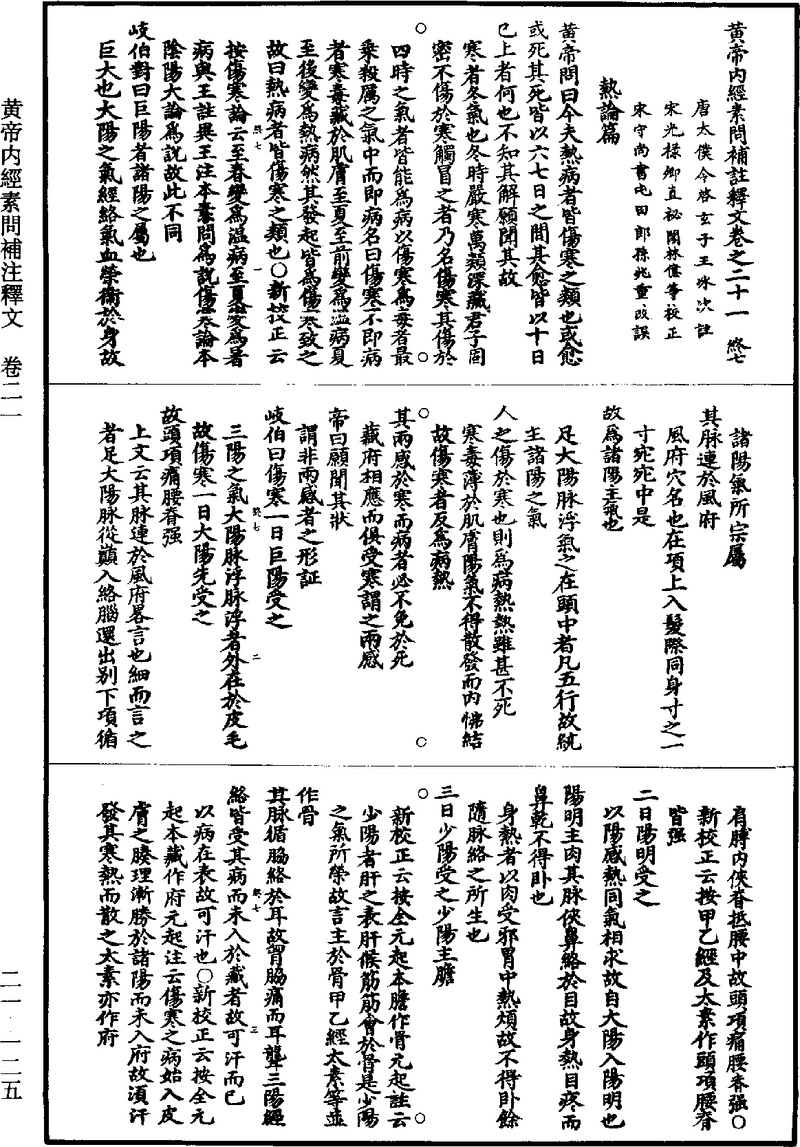 黃帝內經素問補註釋文卷之二十一 終七
唐太僕令啓玄子王冰次註
宋光祿卿直祕閣林億等校正
宋守尚書屯田郎孫兆重改誤
熱論篇
黃帝問曰今夫熱病者皆傷寒之類也或愈
或死其死皆以六七日之間其愈皆以十日
已上者何也不知其解願聞其故
寒者冬氣也冬時嚴寒萬類深藏君子固
密不傷於寒觸冒之者乃名傷寒其傷於
四時之氣者皆能為病以傷寒為毒者最
乘殺厲之氣中而即病名曰傷寒不即病
者寒毒藏於肌膚至夏至前變為溫病夏
至後變為熱病然其發起皆為傷寒致之
故曰熱病者皆傷寒之類也○新校正云
按傷寒論云至春變為溫病至夏變為暑
病與王註異王注本素問為說傷寒論本
陰陽大論為說故此不同
岐伯對曰巨陽者諸陽之屬也
巨大也大陽之氣經絡氣血榮衛於身故
諸陽氣所宗屬
其脉連於風府
風府穴名也在項上入髮際同身寸之一
寸宛宛中是
故為諸陽主氣也
足大陽脉浮氣之在頭中者凡五行故統
主諸陽之氣
人之傷於寒也則為病熱熱雖甚不死
寒毒薄於肌膚陽氣不得散發而內怫結
故傷寒者反為病熱
其兩感於寒而病者必不免於死
藏府相應而俱受寒謂之兩感
帝曰願聞其狀
謂非兩感者之形証
岐伯曰傷寒一日巨陽受之
三陽之氣大陽脉浮脉浮者外在於皮毛
故傷寒一日大陽先受之
故頭項痛腰脊强
上文云其脉連於風府畧言也細而言之
者足大陽脉從巔入絡腦還出别下項循
肩膊內俠脊抵腰中故頭項痛腰脊强○
新校正云按甲乙經及太素作頭項腰脊
皆强
二日陽明受之
以陽感熱同氣相求故自大陽入陽明也
陽明主肉其脉俠鼻絡於目故身熱目疼而
鼻乾不得卧也
身熱者以肉受邪胃中熱煩故不得卧餘
隨脉絡之所生也
三日少陽受之少陽主膽
新校正云按全元起本膽作骨元起註云
少陽者肝之表肝候筋筋會於骨是少陽
之氣所榮故言主於骨甲乙經太素等並
作骨
其脉循脇絡於耳故胷脇痛而耳聾三陽經
絡皆受其病而未入於藏者故可汗而已
以病在表故可汗也○新校正云按全元
起本藏作府元起注云傷寒之病始入皮
膚之腠理漸勝於諸陽而未入府故須汗
發其寒熱而散之太素亦作府
黄帝内經素問補注釋文 卷二一
二一·一二五